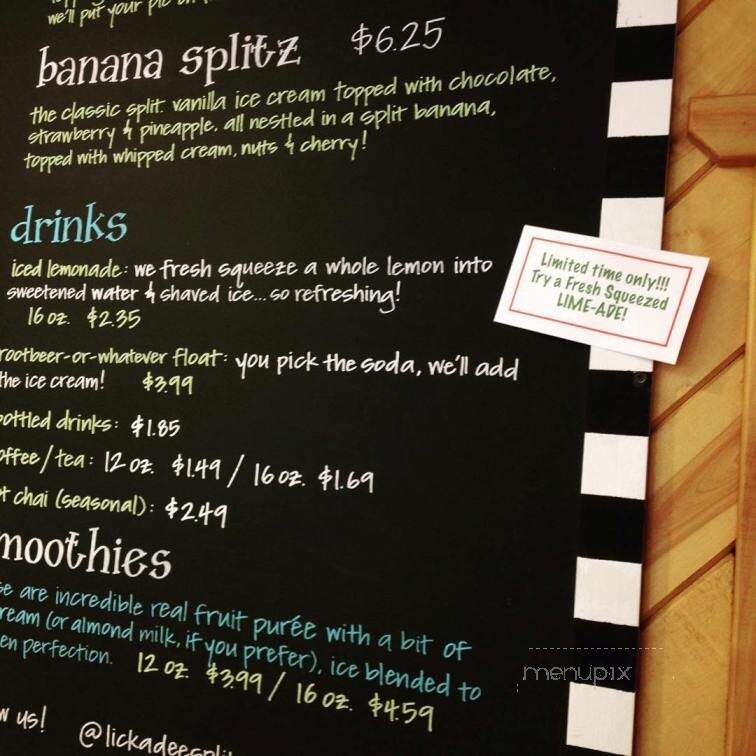 we'll put your pic on
banana splitz $6.25
the classic split. vanilla ice cream topped with chocolate,
strawberry & pineapple. all nestled in a split banana,
topped with whipped cream, nuts & cherry!
drinks
iced lemonade: we fresh squeeze a whole lemon into
sweetened water & shaved ice... so refreshing!
16 oz. $2.35
Limited time only!!!
Try a Fresh Squeezed
LIME-ADE!
rootbeer-or-whatever float: you pick the soda, we'll add
the ice cream! $3.99
ottled drinks: $1.85
offee/tea: 12 oz. $1.49 / 16 oz. $1.69
t chai (seasonal): $2.49
moothies
se are incredible real fruit purée with a bit of
ream (or almond milk, if you prefer), ice blended to
en perfection. 12 oz. $3.99 / 16 oz. $4.59
w us! @lickadeespli
menupix